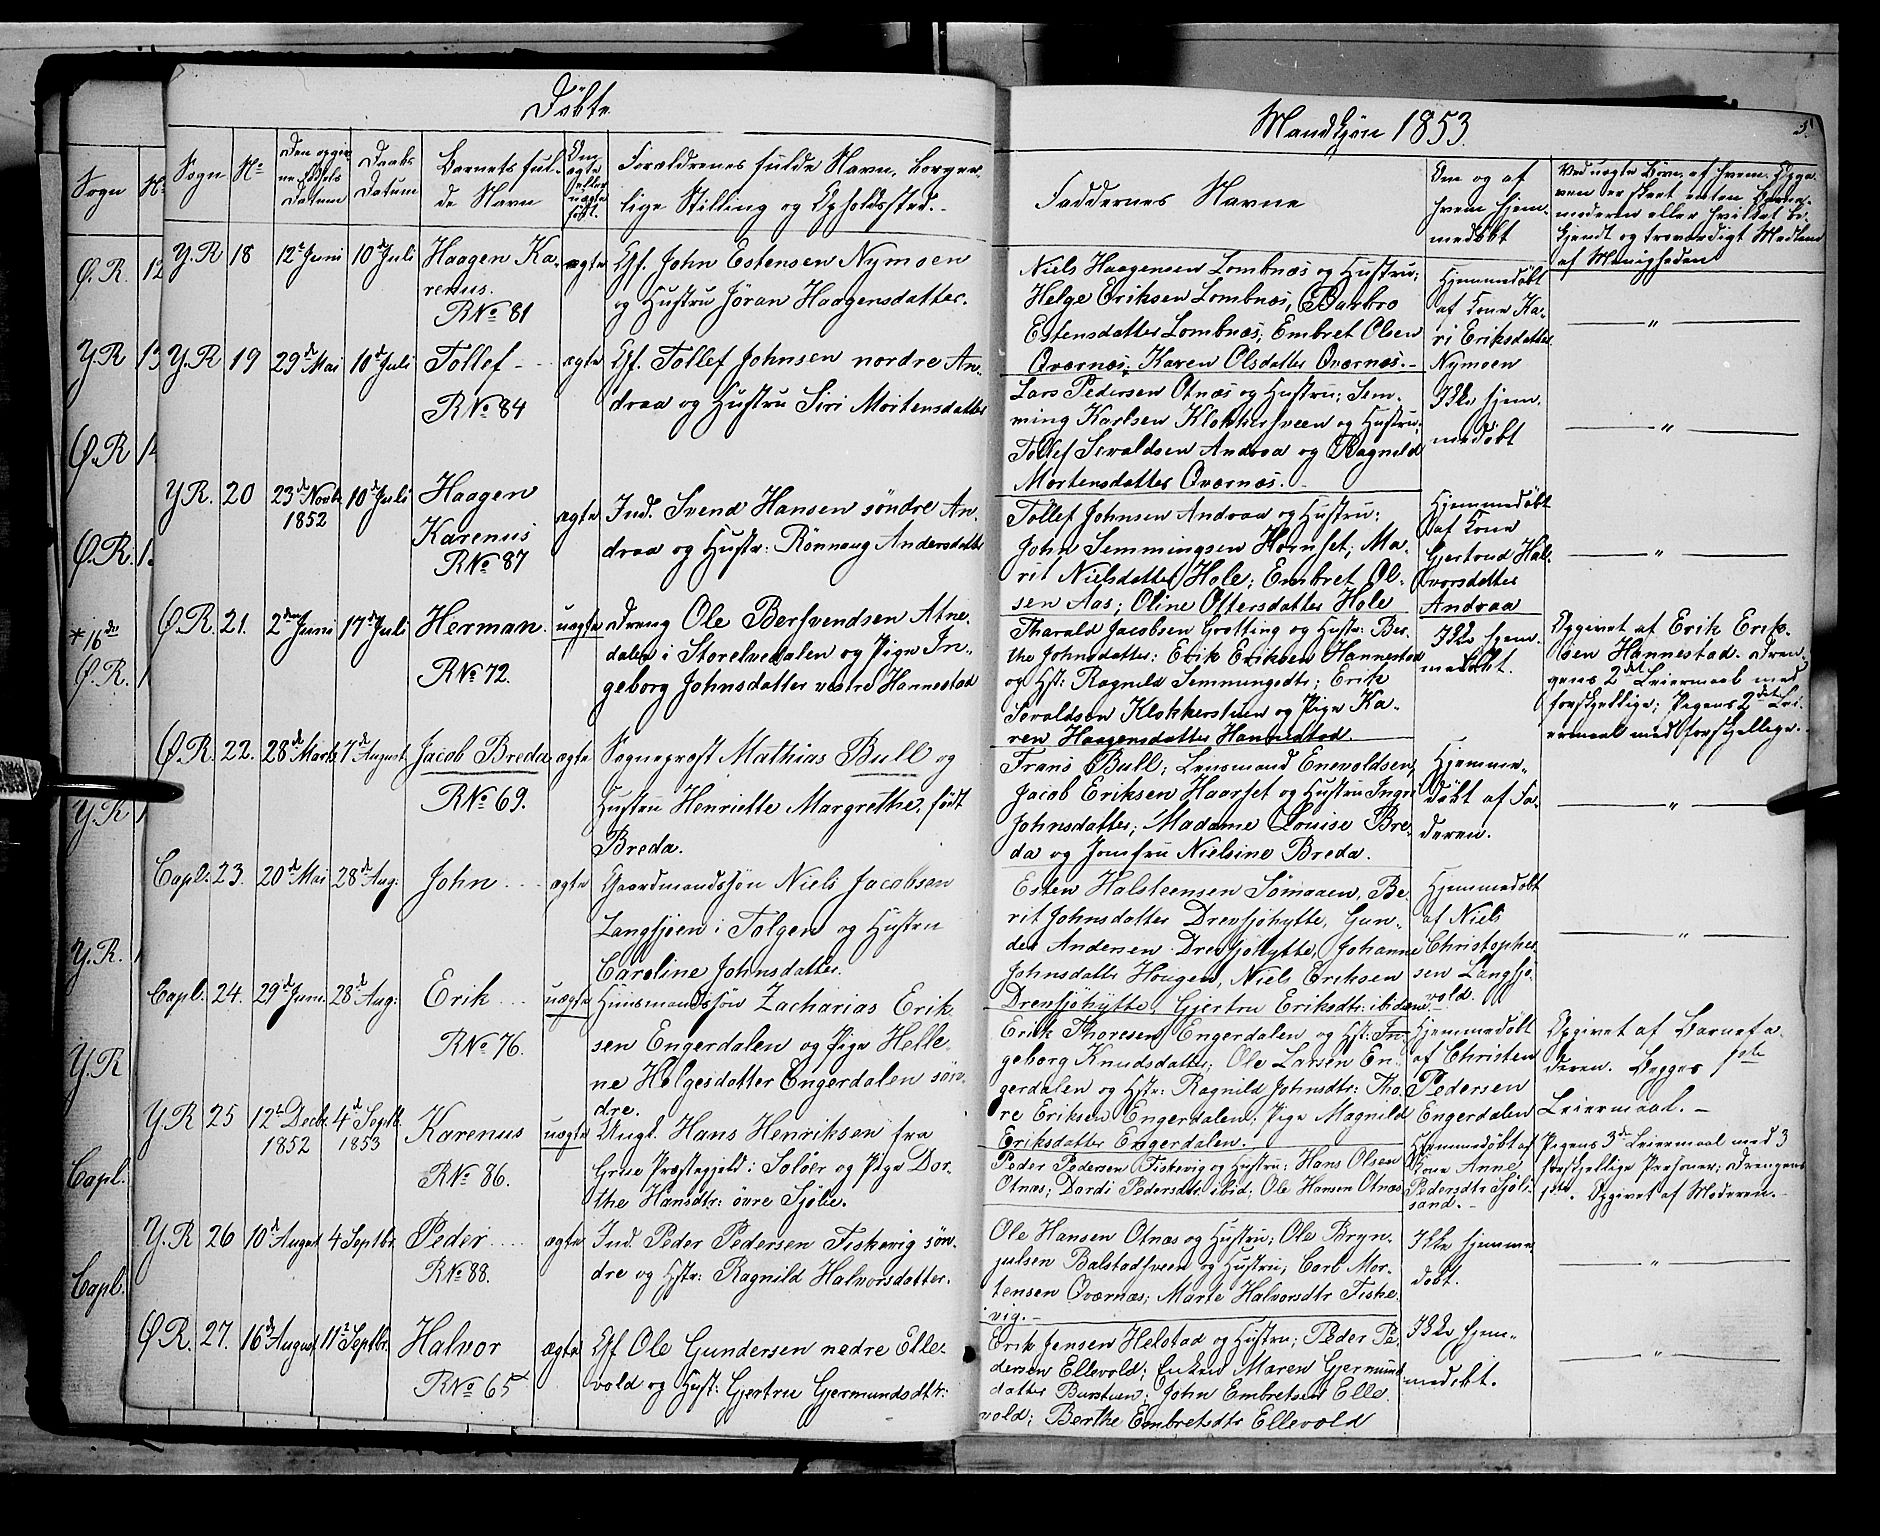 Döbte
Mandkjön 1853.
5.
Sogn
N:
Sogn
No
Den opgiv-
ne Födsels
Datum
Daabs
Datum
Barnets ful-
de Navn
Om
ægte
eller
uægte
født.
Forældrenes fulde Navn, borger-
lige Stilling og Opholdssted.
Faddernes Navne
Om og af
hvem hjem-
medöbt
Ved uægte Börn, af hvem Opga-
ven er skeet enten Barne-
moderen eller hvilket be-
kjendt og troværdigt Medlem
af Menigheden
Ø. R. 12
Y. R 13
Ø. R 14
Ø. R. 1
* 16de
Ø. R. 1
Y. R
Y. R.
Y. R
Capl.
Capl.
Y. R 18 12te Juni 10d Juli Haagen Ka-
renus.
R No 81
ægte
Gf. John Estensen Nymoen
og Hustru Jöran Haagensdatter.
Niels Haagensen Lombnæs og Hustru;
Helge Eriksen Lombnæs, Barbro
Estensdatter Lombnæs; Embret Olsen
Qværnæs; Karen Olsdatter Qværnæs.-
Hjemmedöbt
af Kone Ka-
ri Eriksdatter
Nymoen
— " —
Y. R 19 29d Mai 10d Juli Tollef -
R No 84
ægte
Gf. Tollef Johnsen nordre An-
draa og Hustru Siri Mortensdatter
Lars Pedersen Otnæs og Hustru; Sem-
ming Karlsen Klokkersveen og Hustru;
Tollef Sevaldsen Andraa og Ragnild
Mortensdatter Qværnæs.
Ikke hjem-
medöbt
— " —
Y. R. 20 23d Novbr 1852 10d Juli Haagen
Karenus
R No 87
ægte
Ind. Svend Hansen söndre An-
draa og Hustr: Rönnaug Andersdatter
Tollef Johnsen Andraa og Hustru;
John Semmingsen Hornset; Ma-
rit Nielsdatter Hole; Embret Ol-
sen Aas; Oline Ottersdatter Hole
Hjemmedöbt
af Kone
Gjertrud Hal-
vorsdatter
Andraa
— " —
Ø. R. 21. 2den Juni 17d Juli Herman.
R No 72.
uægte
Dreng Ole Bersvendsen Atne-
dalen i Storelvedalen og Pige In-
geborg Johnsdatter vestre Hannestad
Tharald Jacobsen Grötting og Hustr: Ber-
the Johnsdatter; Erik Eriksen Hannestad
og Hst: Ragnild Semmingsdtr; Erik
Sevaldsen Klokkerstuen og Pige Ka-
ren Haagensdatter Hannestad.
Ikke hjem-
medöbt.
Opgivet af Erik Erik-
sen Hannestad. Dren-
gens 2det Leiermaal med
forskjellige; Pigens 2det Lei-
ermaal med forskjellige.
Ø. R. 22. 28d Marts 7d August Jacob Breda
R No 69.
ægte
Sogneprest Mathias Bull og
Hustru Henriette Margrethe, född
Breda.
Frans Bull; Lensmand Enevoldsen;
Jacob Eriksen Haarset og Hustru Ingri
Johnsdatter; Madame Louise Bre-
da og Jomfru Nielsine Breda.
Hjemme-
döbt af Fa-
deren.
— " —
Capl. 23. 20d Mai 28d Aug. John
ægte
Gaardmandssön Niels Jacobsen
Langsjöen i Tolgen og Hustru
Caroline Johnsdatter.
Esten Halsteensen Sömaaen, Be-
rit Johnsdatter Drevsjöhytte, Gun-
der Andersen Drevsjöhytte, Johanne
Johnsdatter Hougen, Niels Eriksen
Drevsjöhytte, Gjertru Eriksdtr: ibidem.
Hjemmedöbt
af Niels
Christopher
sen Langsjö-
vold.
— " —
Capl. 24. 29d Juni. 28d Aug: Erik
R No 76.
uægte
Huusmandssön Zacharias Erik-
sen Engerdalen og Pige Helle-
ne Helgesdatter Engerdalen sön-
dre.
Erik Thoresen Engerdalen og Hst: In-
geborg Knudsdatter; Ole Larsen En-
gerdalen og Hst: Ragnild Johnsdtr: Tho-
re Eriksen Engerdalen; Pige Magnild
Eriksdatter Engerdalen.
Hjemmedöbt
af Christen
Pedersen
Engerdalen
Opgivet af Barnefa-
deren. Begges 1ste
Leiermaal. -
Y. R 25 12te Decbr. 1852 4d Septb. 1853 Karenus
R No 86.
uægte
Ungk. Hans Henriksen fra
Grue Præstegjeld i Solöer og Pige Dor-
the Hansdtr: övre Sjölie.
Peder Pedersen Fiskevig og Hustru; Hans Olsen
Otnæs; Dordi Pedersdtr ibid; Ole Hansen Otnæs
Hjemmedöbt af
Kone Anne
Pedersdtr Sjöli-
sand. -
Pigens 3de Leiermaal med 3
forskjellige Personer; Drengens
1ste. Opgivet af Moderen. -
Y. R 26 10d August 4 Septbr. Peder
R No 88.
ægte
Ind. Peder Pedersen Fiskevig sön-
dre og Hstr: Ragnild Halvorsdatter.
Ole Hansen Otnæs og Hustru; Ole Bryn-
julsen Balstadsveen og Hustru; Carl Mor-
tensen Qværnæs; Marte Halvorsdtr Fiske-
vig.-
Ikke hjemme-
döbt.
— " —
Ø R. 27. 16d August 11te Septbr. Halvor
R No 65
ægte
Gf Ole Gundersen nedre Elle-
vold og Hust: Gjertru Gjermundsdtr:
Erik Jensen Helstad og Hustru; Peder Pe-
dersen Ellevold; Enken Maren Gjermunds
datter Burstuen; John Embretsen Elle
vold; Berthe Embretsdtr Ellevold
Ikke hjem-
medöbt.
— " —